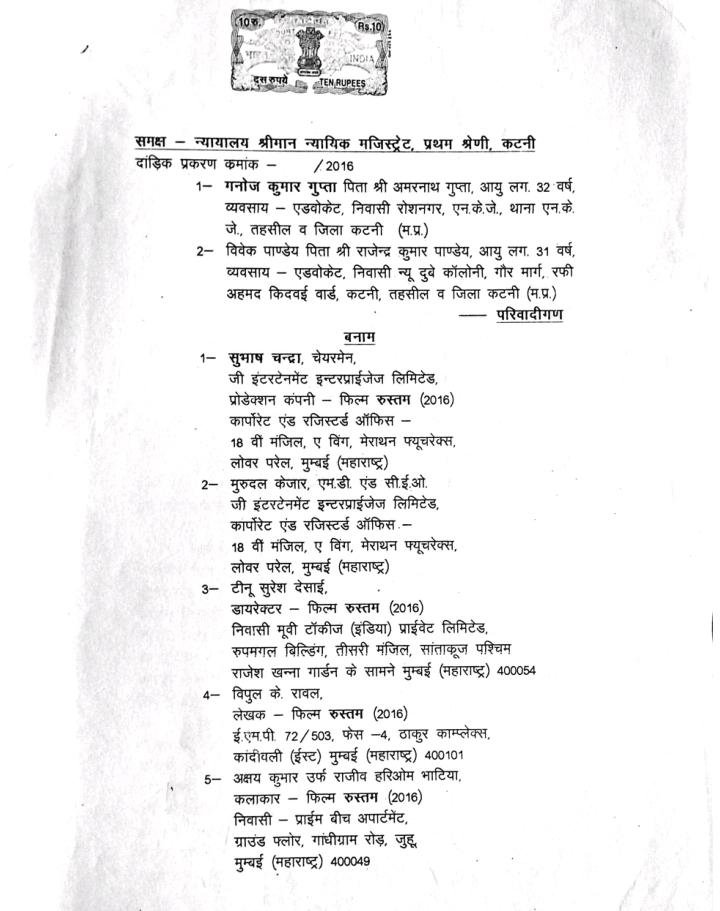 10 रु.
Rs.10
भारत
INDIA
दस रुपये
TEN RUPEES
समक्ष – न्यायालय श्रीमान न्यायिक मजिस्ट्रेट, प्रथम श्रेणी, कटनी
दांड़िक प्रकरण कमांक – /2016
1– गनोज कुमार गुप्ता पिता श्री अमरनाथ गुप्ता, आयु लग. 32 वर्ष,
व्यवसाय – एडवोकेट, निवासी रोशनगर, एन.के.जे., थाना एन.के.
जे., तहसील व जिला कटनी (म.प्र.)
2– विवेक पाण्डेय पिता श्री राजेन्द्र कुमार पाण्डेय, आयु लग. 31 वर्ष,
व्यवसाय – एडवोकेट, निवासी न्यू दुबे कॉलोनी, गौर मार्ग, रफी
अहमद किदवई वार्ड, कटनी, तहसील व जिला कटनी (म.प्र.)
–– परिवादीगण
बनाम
1– सुभाष चन्द्रा, चेयरमेन,
जी इंटरटेनमेंट इन्टरप्राईजेज लिमिटेड,
प्रोडेक्शन कंपनी – फिल्म रुस्तम (2016)
कार्पोरेट एंड रजिस्टर्ड ऑफिस –
18 वीं मंजिल, ए विंग, मेराथन फ्यूचरेक्स,
लोवर परेल, मुम्बई (महाराष्ट्र)
2– मुरुदल केजार, एम.डी. एंड सी.ई.ओ.
जी इंटरटेनमेंट इन्टरप्राईजेज लिमिटेड,
कार्पोरेट एंड रजिस्टर्ड ऑफिस –
18 वीं मंजिल, ए विंग, मेराथन फ्यूचरेक्स,
लोवर परेल, मुम्बई (महाराष्ट्र)
3– टीनू सुरेश देसाई,
डायरेक्टर – फिल्म रुस्तम (2016)
निवासी मूवी टॉकीज (इंडिया) प्राईवेट लिमिटेड,
रुपमगल बिल्डिंग, तीसरी मंजिल, सांताकूज पश्चिम
राजेश खन्ना गार्डन के सामने मुम्बई (महाराष्ट्र) 400054
4– विपुल के. रावल,
लेखक – फिल्म रुस्तम (2016)
ई.एम.पी. 72/503, फेस –4, ठाकुर काम्प्लेक्स,
कांदीवली (ईस्ट) मुम्बई (महाराष्ट्र) 400101
5– अक्षय कुमार उर्फ राजीव हरिओम भाटिया,
कलाकार – फिल्म रुस्तम (2016)
निवासी – प्राईम बीच अपार्टमेंट,
ग्राउंड फ्लोर, गांधीग्राम रोड़, जुहू,
मुम्बई (महाराष्ट्र) 400049